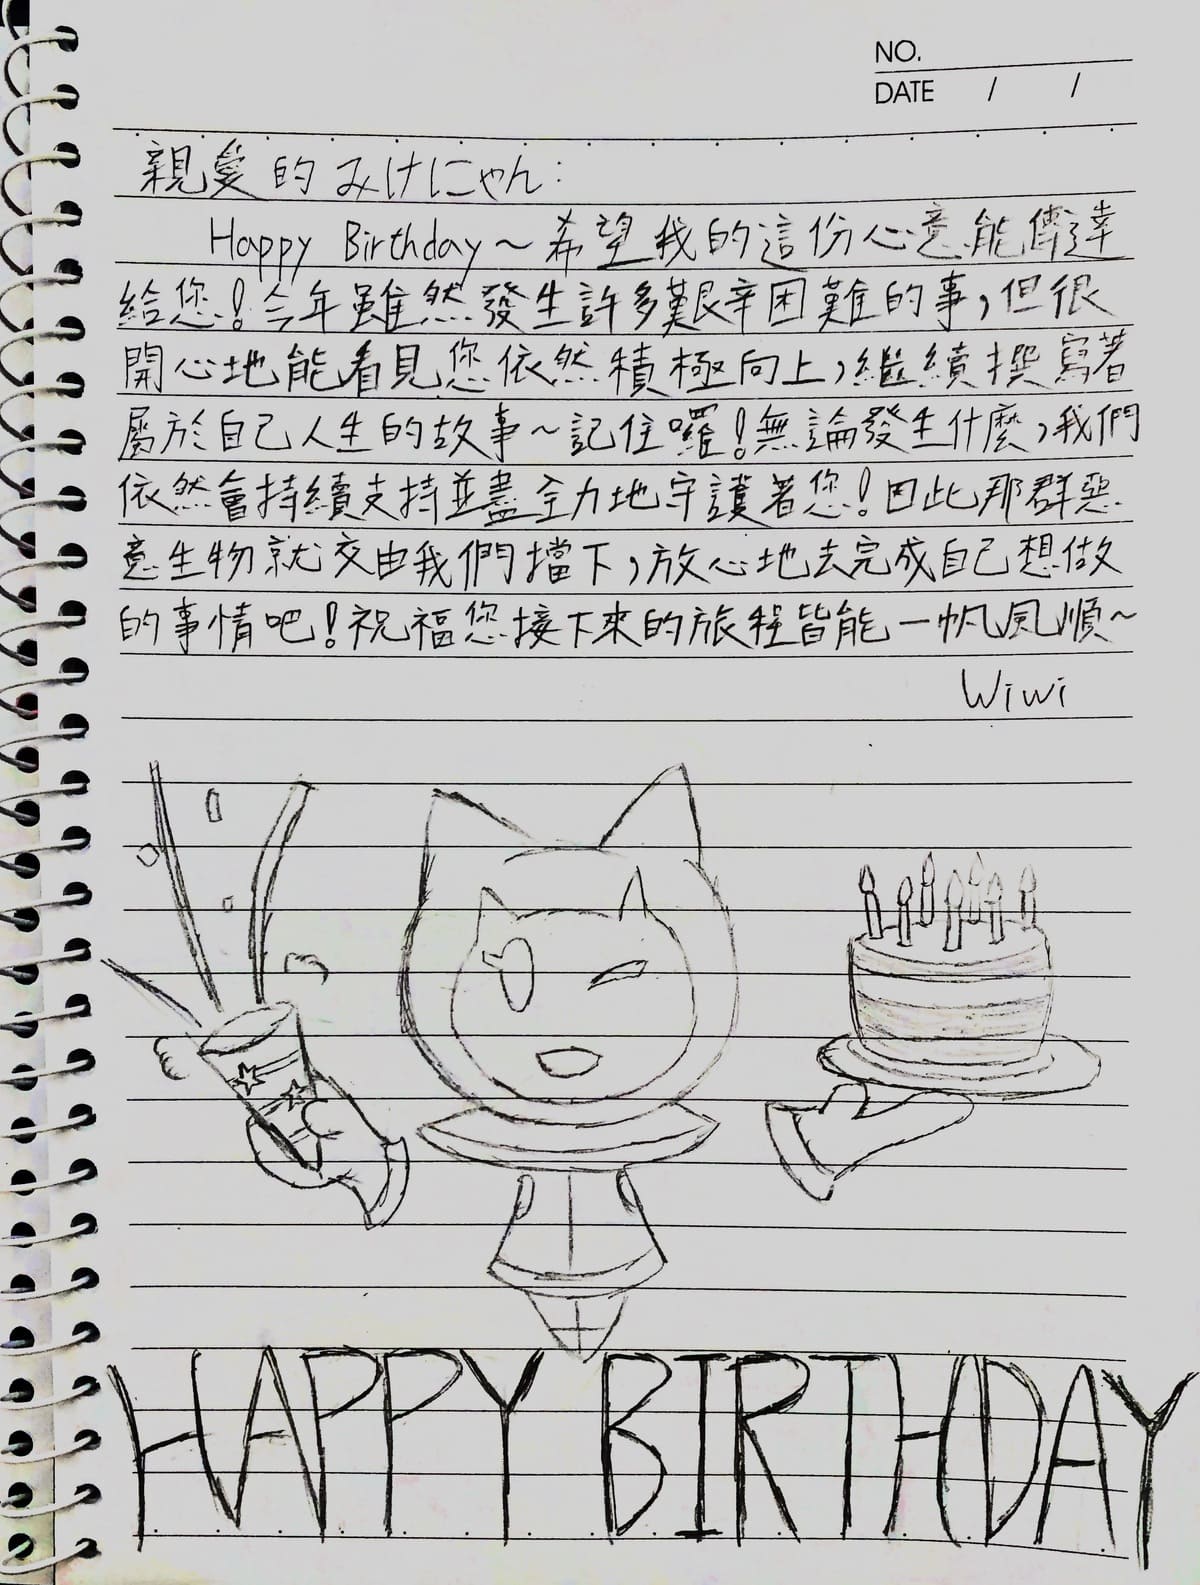 NO.
DATE / /
親愛的みけにゃん:
Happy Birthday～希望我的這份心意能傳達
給您!今年雖然發生許多艱辛困難的事,但很
開心地能看見您依然積極向上,繼續撰寫著
屬於自己人生的故事～記住囉!無論發生什麼,我們
依然會持續支持並盡全力地守護著您!因此那群惡
意生物就交由我們擋下,放心地去完成自己想做
的事情吧!祝福您接下來的旅程皆能一帆風順～
Wiwi
HAPPY BIRTHDAY